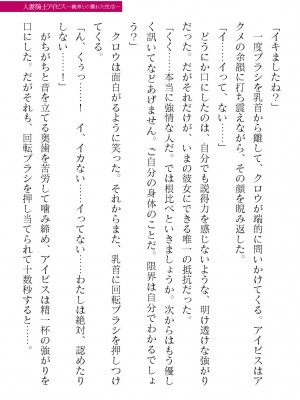 人妻騎士アイビス
「イキましたね？」
一度ブラシを乳首から離して、クロウが端的に問いかけてくる。アイビスはア
クメの余韻に打ち震えながら、その顔を睨み返した。
「イ……イって、ない……」
どうにか口にしたのは、自分でも説得力を感じないような、明け透けな強がり
だった。だがそれだけが、いまの彼女にできる唯一の抵抗だった。
「くく……本当に強情な人だ。では根比べといきましょうか。次からはもう優し
く訊いてなどあげません。ご自分の身体のことだ。限界は自分でわかるでしょ
う？」
クロウは面白がるように笑った。それからまた、乳首に回転ブラシを押しつけ
てくる。
「ん、くぅっ……！　イ、イカない……イってない……わたしは絶対、認めたり
しない……！」
がちがちと音を立てる奥歯を苦労して噛み締め、アイビスは精一杯の強がりを
口にした。だがそれも、回転ブラシを押し当てられて十数秒すると……。